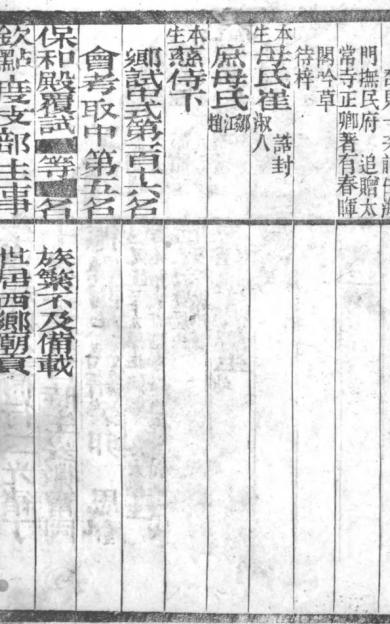 門撫民府 追贈太
常寺正卿著有春暉
閣吟草
待梓
本生母氏崔 淑人 誥封
庶母氏 鄒江趙
本生慈侍下
鄉試中式第一百十六名
會考取中第五名
保和殿覆試 等 名
欽點度支部主事
族繁不及備載
世居西鄉潮貢